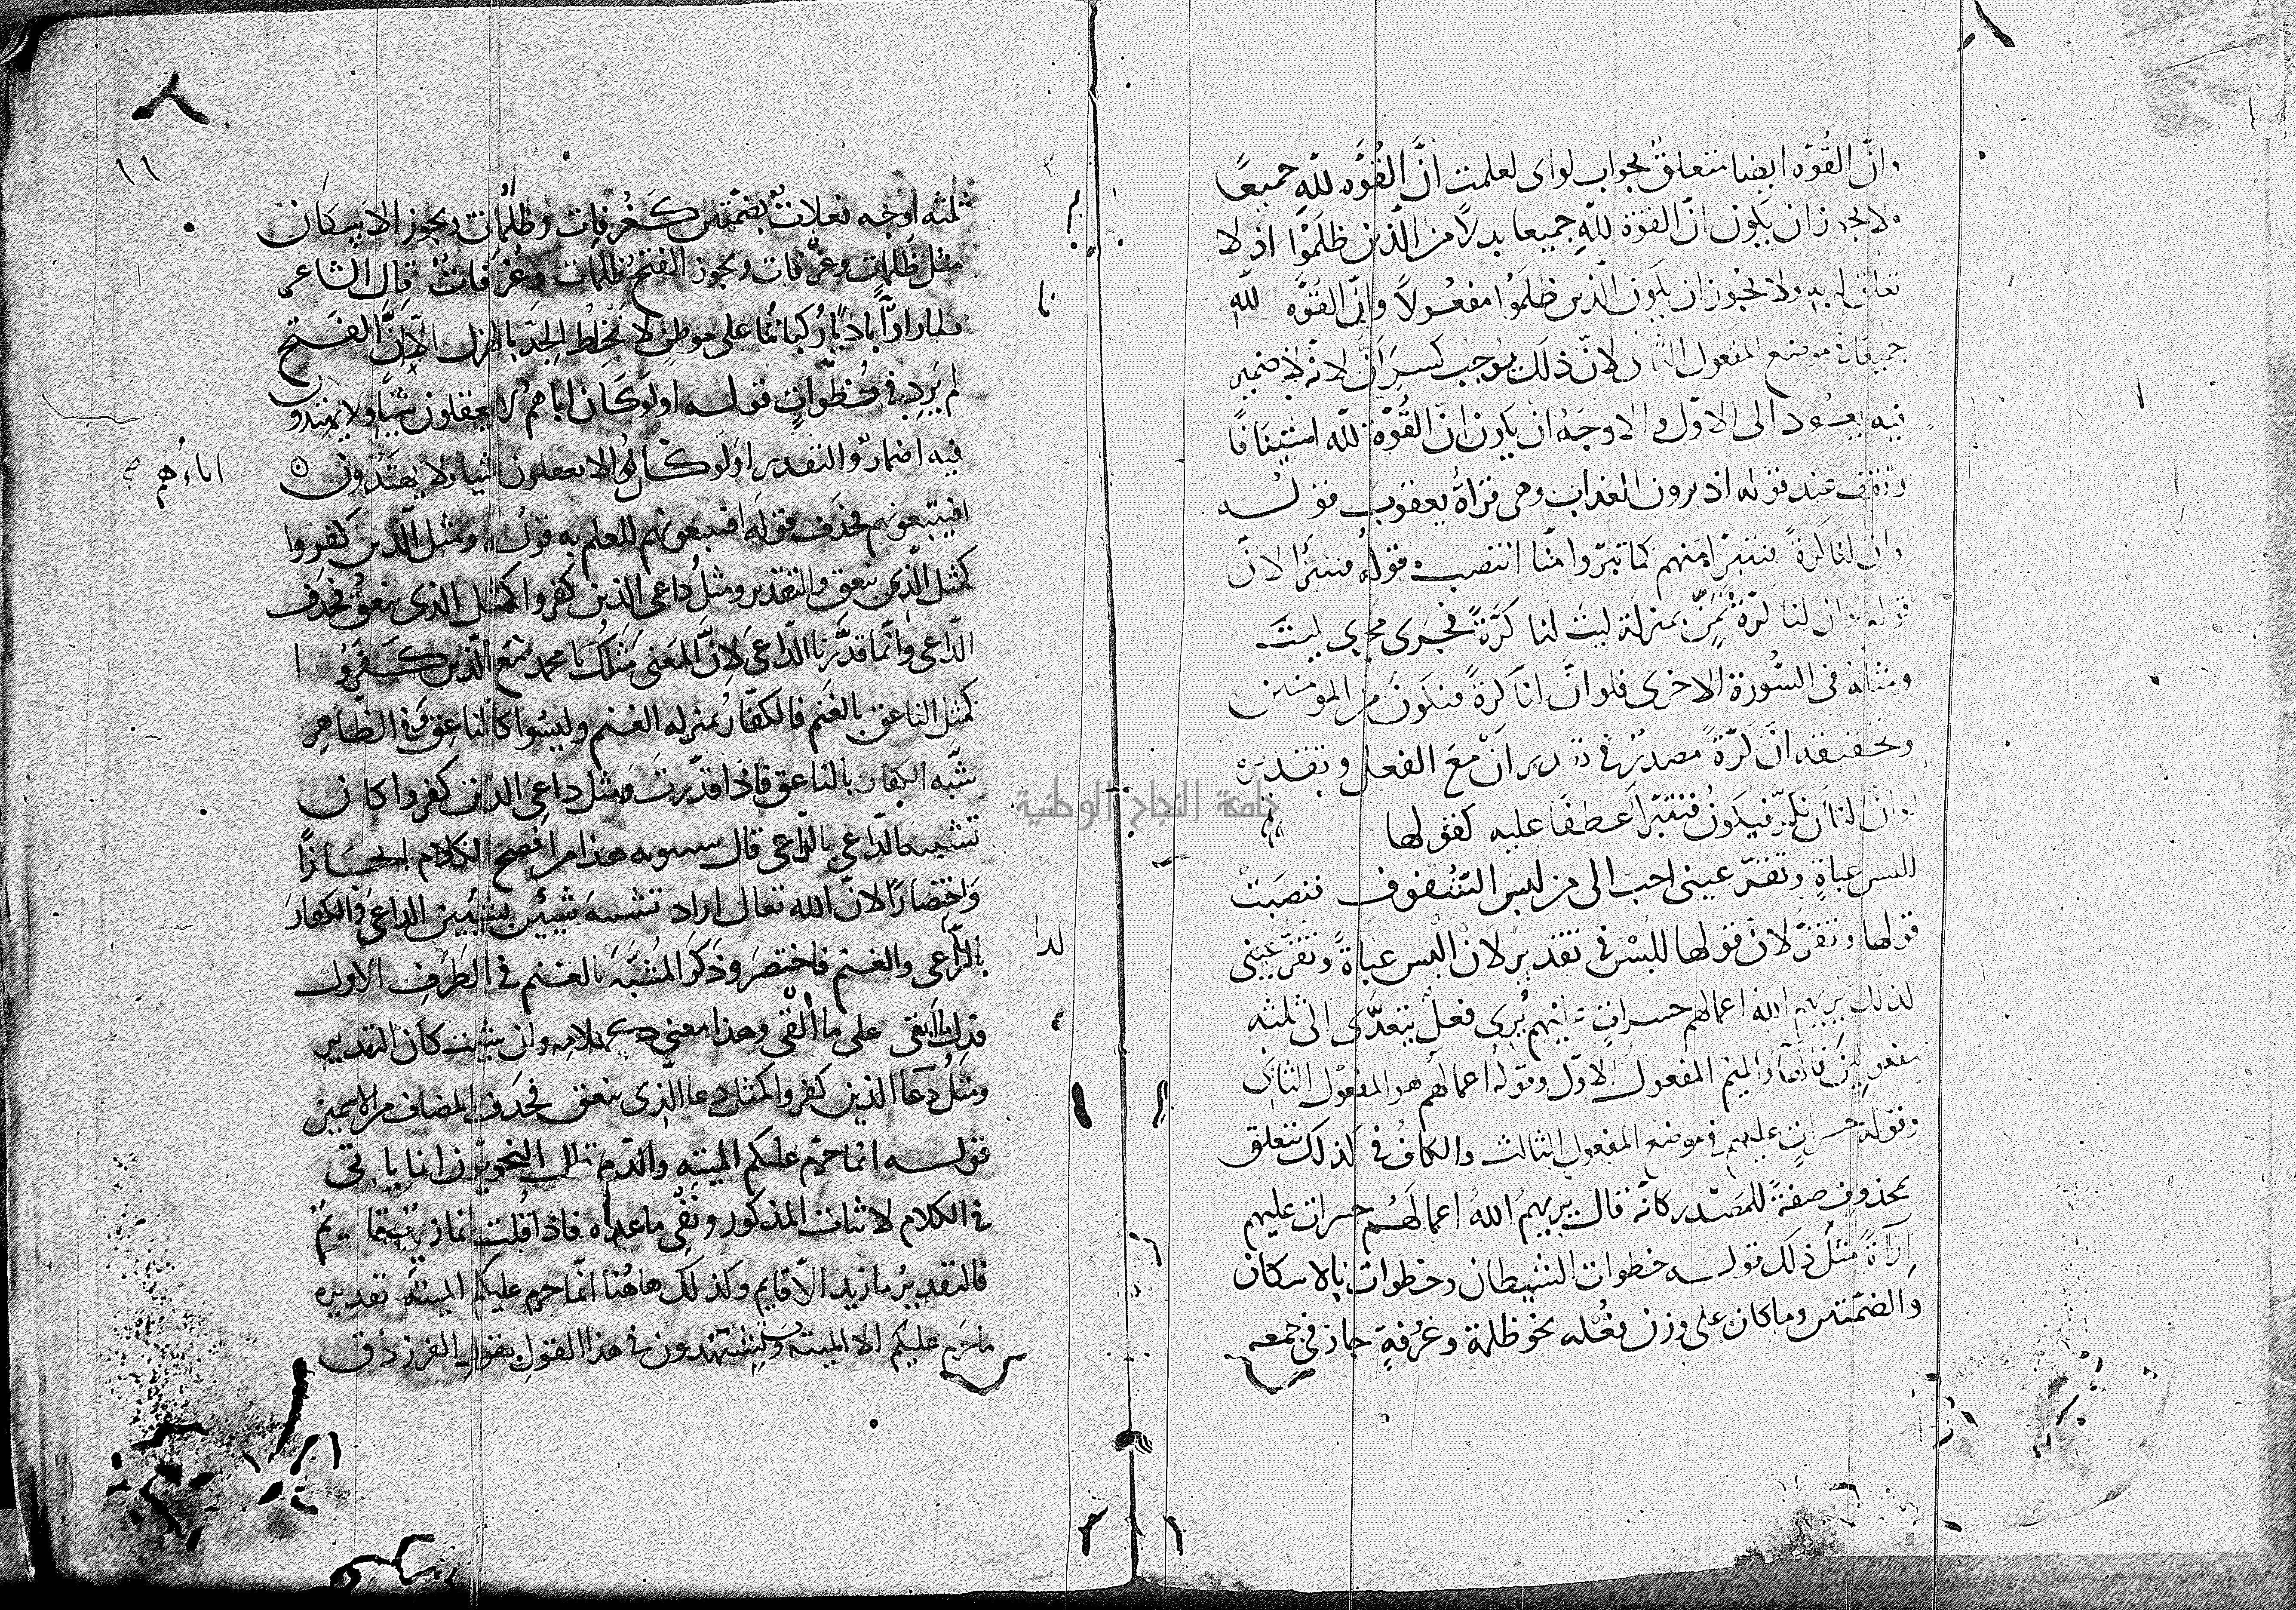 وانّ القُوّه ايضا متعلقٌ بجواب لو اى لعلمت انَّ القُوَّه للّهِ جميعًا
ولا يجوز ان يكون انّ القوة للّهِ جميعا بدلاً من الّذين ظلَمُوا اذ لا
تعلق له بهِ ولا يجُوز ان يكون الّذين ظلَمُوا مفعُولاً وانّ القُوَّه للّهِ
جميعًا فى موضع المفعول الثانى لانّ ذلك يوجب كسر انّ لانّه لا ضمير
فيه يعُود الى الاوّل والاوجَهُ ان يكون انّ القُوّة للّه استينافًا
وتقف عند قوله اذ يرون العذاب وهى قراةُ يعقوب قولُه
لو ان لنا كرةً فنتبرّا منهم كما تبرّوا منّا انتصب قوله فنتبرّا لانّ
قوله لو ان لنا كرّة تمنٍّ بمنزلة ليت لنا كرّةً فجرى مجرى ليت
ومثلهُ فى السُّورة الاخرى فلو انَّ لنا كرةً فنكونَ من المومنين
وتحقيقه انّ كرّةً مصدرٌ فى تقدير انْ مع الفعل وتقديره
لو انّ لنا ان نكرّ فيكونُ فنتبرّا عطفًا عليه كقولها
للبس عباةٍ وتقرّ عينى احب الى من لبس الشُفوف فنصبَتْ
قولها وتقرّ لان قولها للُبْسُ فى تقدير لانْ البس عباةً وتقرَّ عينى
كذلك يريهم اللهُ اعمالهم حسراتٍ عليهم يُرى فعلٌ يتعدَّى الى ثلثه
مفعولين فالهآء والميم المفعول الاوّل وقوله اعمالهم هو المفعول الثانى
وقوله حسراتٍ عليهم فى موضع المفعول الثالث والكافُ فى كذلك تتعلق
بمحذوف صفةً للمصدر كانّه قال يريهمُ اللهُ اعمالهُم حسرات عليهم
اِرآةً مثلَ ذلك قوله خطوات الشيطان وخطوات بالاسكان
والضمّتين وما كان على وزن فُعْله نحو ظلمة وغرُفةٍ جاز فى جمعه
١١
ثلثه اوجه فعلاتٌ بضمّتين كَغُرفات وظُلُمات ويجوز الاسكان
مثل ظُلْمات وغُرْفات ويجوز الفتحُ ظلَمات وغُرَفاتٌ قال الشاعر
ولما راوْنا باديًا رُكباتُنا على موطنٍ لا نخلِطُ الجدَّ بالهزل الّا انَّ الفتح
لم يَرِد فى خُطوّاتٍ قوله اولو كان اباهم لا يعقلون شيًا ولا يهتدون
فيه اضمارٌ والتقدير اولو كانُوا لا يعقلون شيا ولا يهتدُون
اباءُهُم
افيتبعونهم فحذف قوله افيتبعونهم للعلم به قوله ومثل الّذين كفروا
كمثل الّذى ينعق والتقدير ومثلُ داعى الذين كفروا كمثل الذى ينعقُ فحذف
الدّاعى وانّما قدَّرنا الدّاعى لانَّ المعنى مثلُك يا محمد مع الّذين كفَرُوا
كمثل الناعق بالغنم فالكفّار بمنزله الغنم وليسُوا كالناعق وفى الظّاهر
شبّه الكفار بالناعق فاذا قدّرتَ ومثل داعى الذين كفروا كان
تشبيه الدّاعى بالرّاعى قال سيبويه هذا من افصح الكلام ايجازًا
وَاختصارًا لانّ الله تعالى اراد تشبيه شيئين بشيئين الداعى والكفارَ
بالرّاعى والغنم فاختصر وذكَر المُشبَّه بالغنم فى الطَرَف الاول
فدل ما ابقى على ما القى وهذا معنى كلامه وان شيت كان التقدير
ومثَلُ دُعآ الّذين كفروا كمثل دعا الّذى ينعق فحذف المضاف من الاسمين
قوله انّما حرّم عليكم الميته والدّم قال النحويّون انما ياتى
فى الكلام لاثبات المذكور ونفى ما عداه فاذا قلت انما زيدٌ قايمٌ
فالتقديرُ ما زيد الّا قايم وكذلك هاهُنا انّما حرم عليكم الميته تقديره
ما حَرّم عليكم الا الميته ويستشهدون فى هذا القول بقول الفرزدق
جامعة النجاح الوطنية